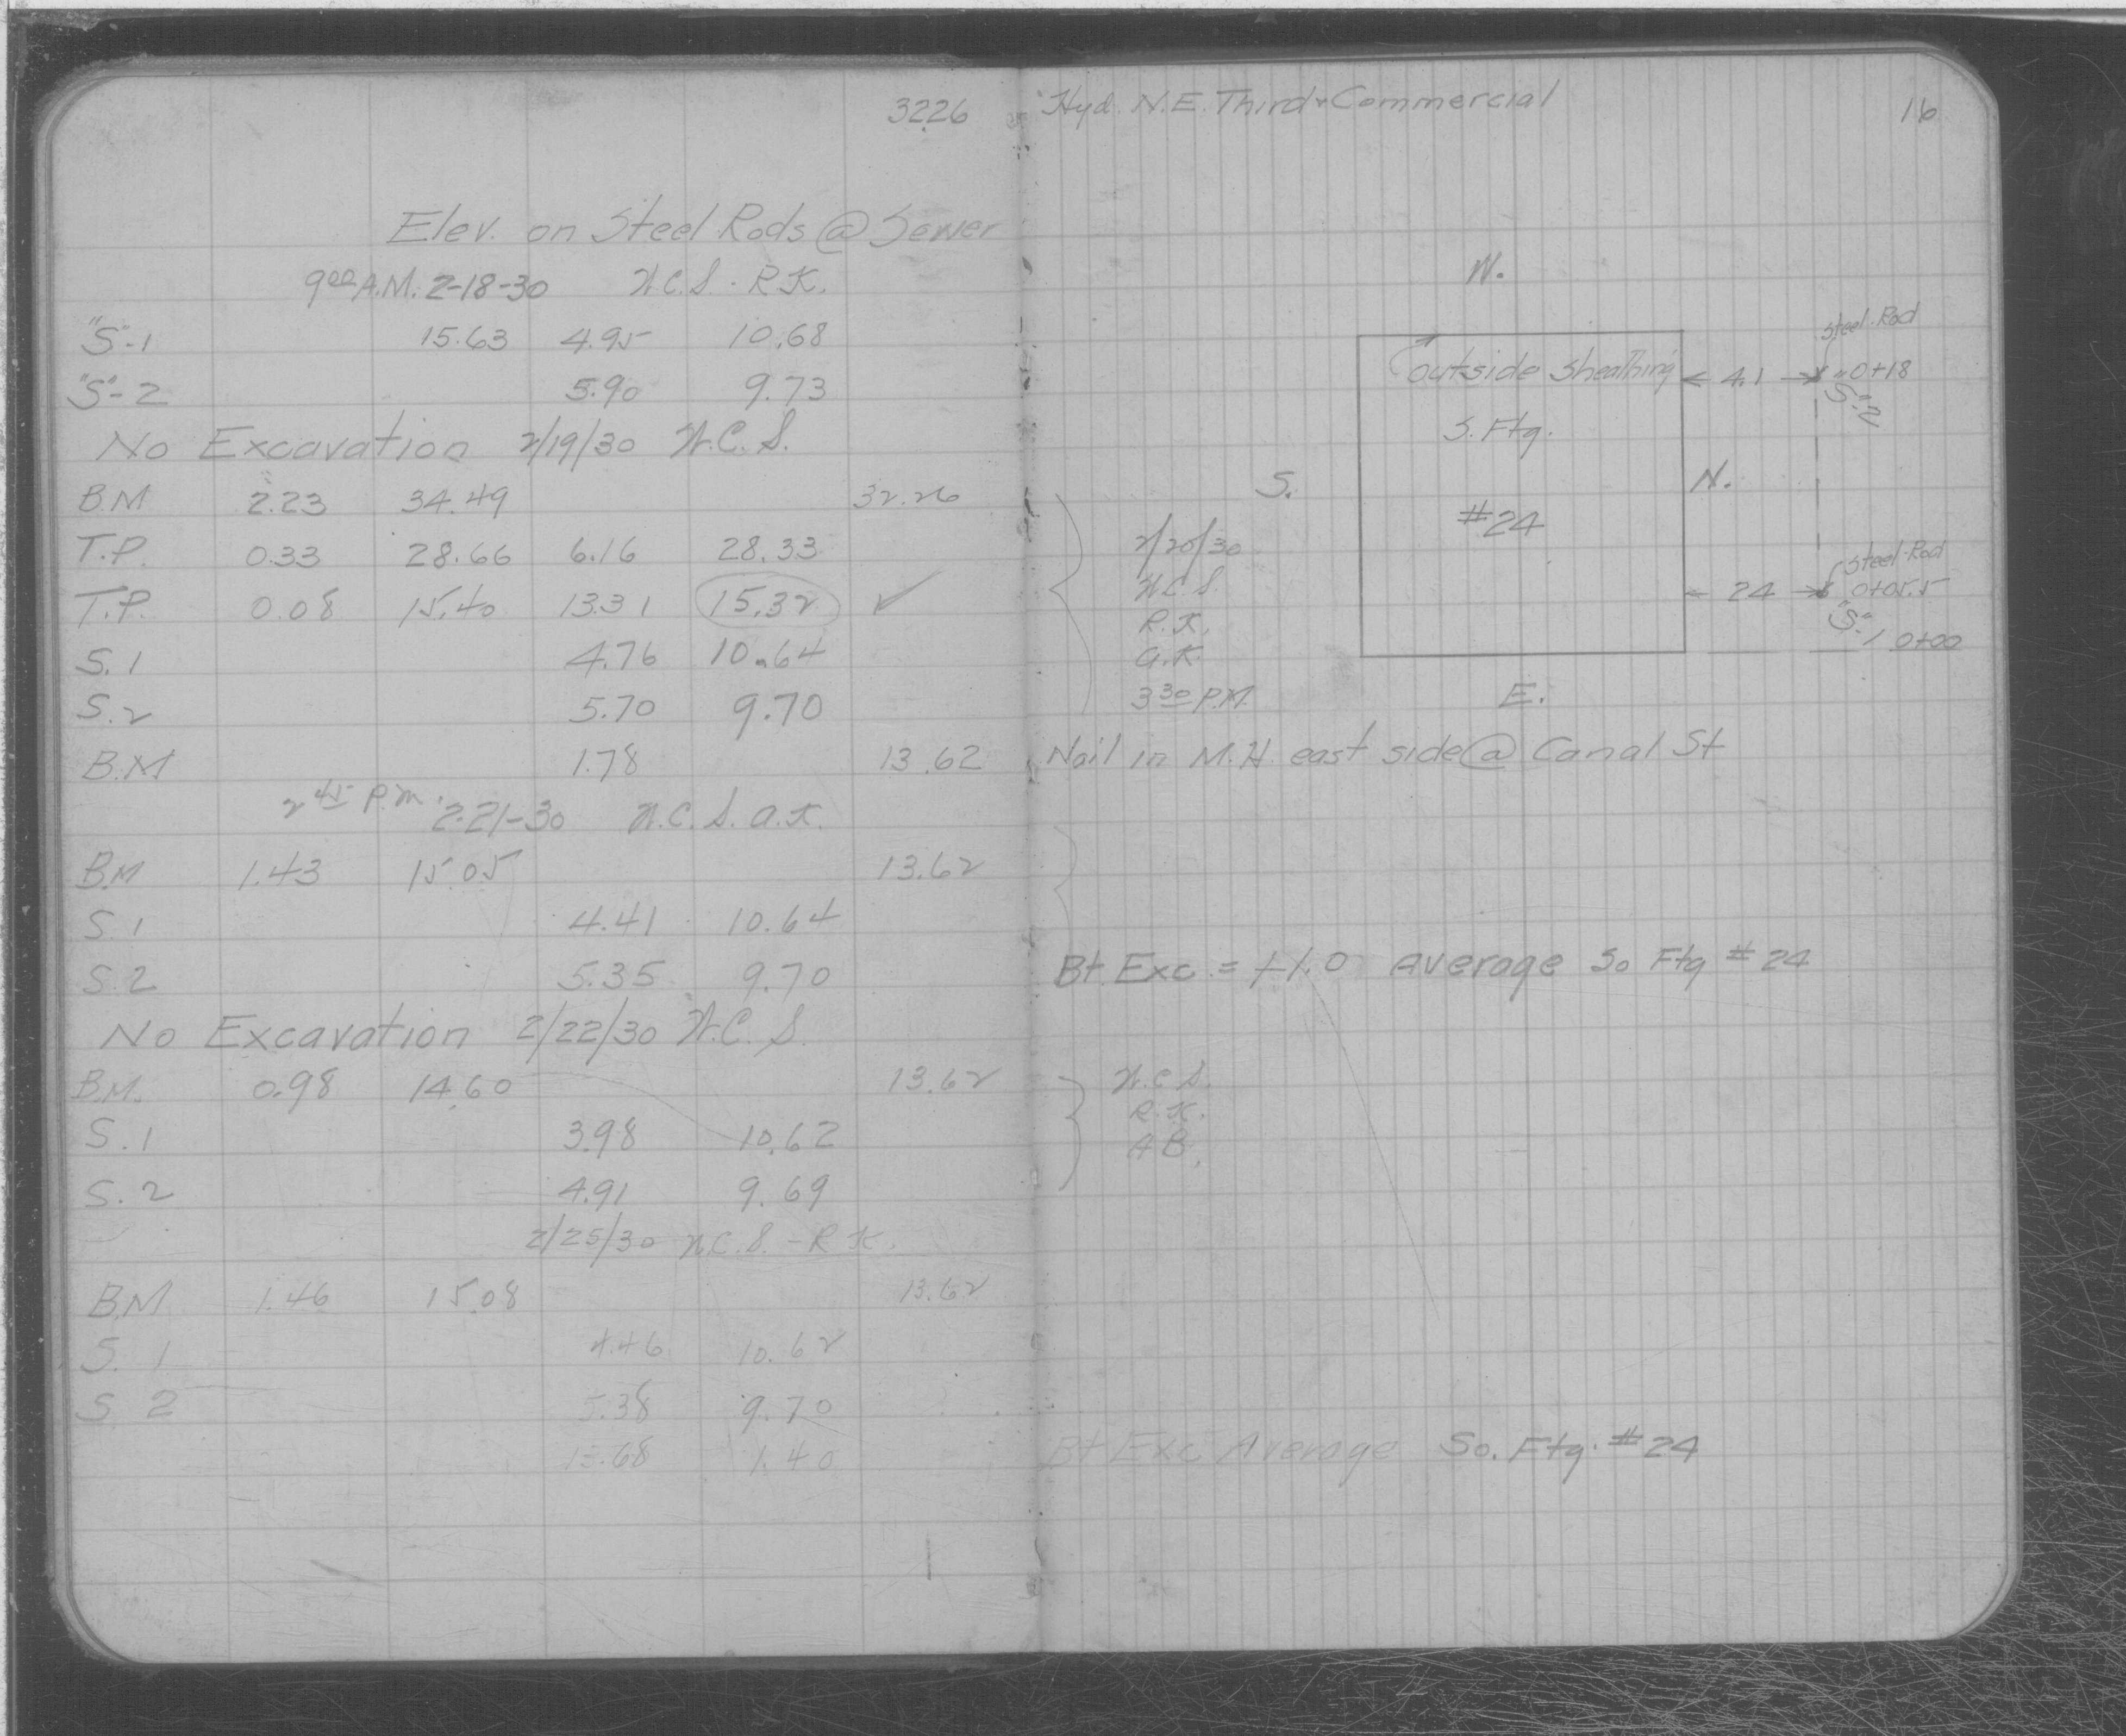 32.26 Hyd. N.E. Third & Commercial 16
Elev. on Steel Rods @ Sewer
9 00 A.M. 2-18-30 N.C.S. - R.K.
"S"-1 15.63 4.95 10.68
"S"-2 5.90 9.73
No Excavation 2/19/30 N.C.S.
BM 2.23 34.49 32.26
T.P. 0.33 28.66 6.16 28.33
T.P. 0.08 15.40 13.31 15.32 ✓
S.1 4.76 10.64
S.2 5.70 9.70
B.M 1.78 13.62 Nail in M.H. east side @ Canal St
2 45 P.M. 2-21-30 N.C.S. A.K.
B.M 1.43 15.05 13.62
S.1 4.41 10.64
S.2 5.35 9.70
No Excavation 2/22/30 N.C.S.
B.M. 0.98 14.60 13.62
S.1 3.98 10.62
S.2 4.91 9.69
2/25/30 N.C.S. - R.K.
B.M 1.46 15.08 13.62
S. 1 4.46 10.62
S. 2 5.38 9.70
13.68 1.40
W.
outside sheathing
4.1
Steel-Rod
0+18
"S"-2
S. Ftg.
S.
N.
#24
24
Steel-Rod
0+05.5
"S"-1
0+00
E.
2/20/30
N.C.S.
R.K.
G.K.
3 30 P.M.
Bt. Exc. = +1.0 Average So Ftg #24
N.C.S.
R.K.
A.B.
Bt Exc Average So. Ftg. #24